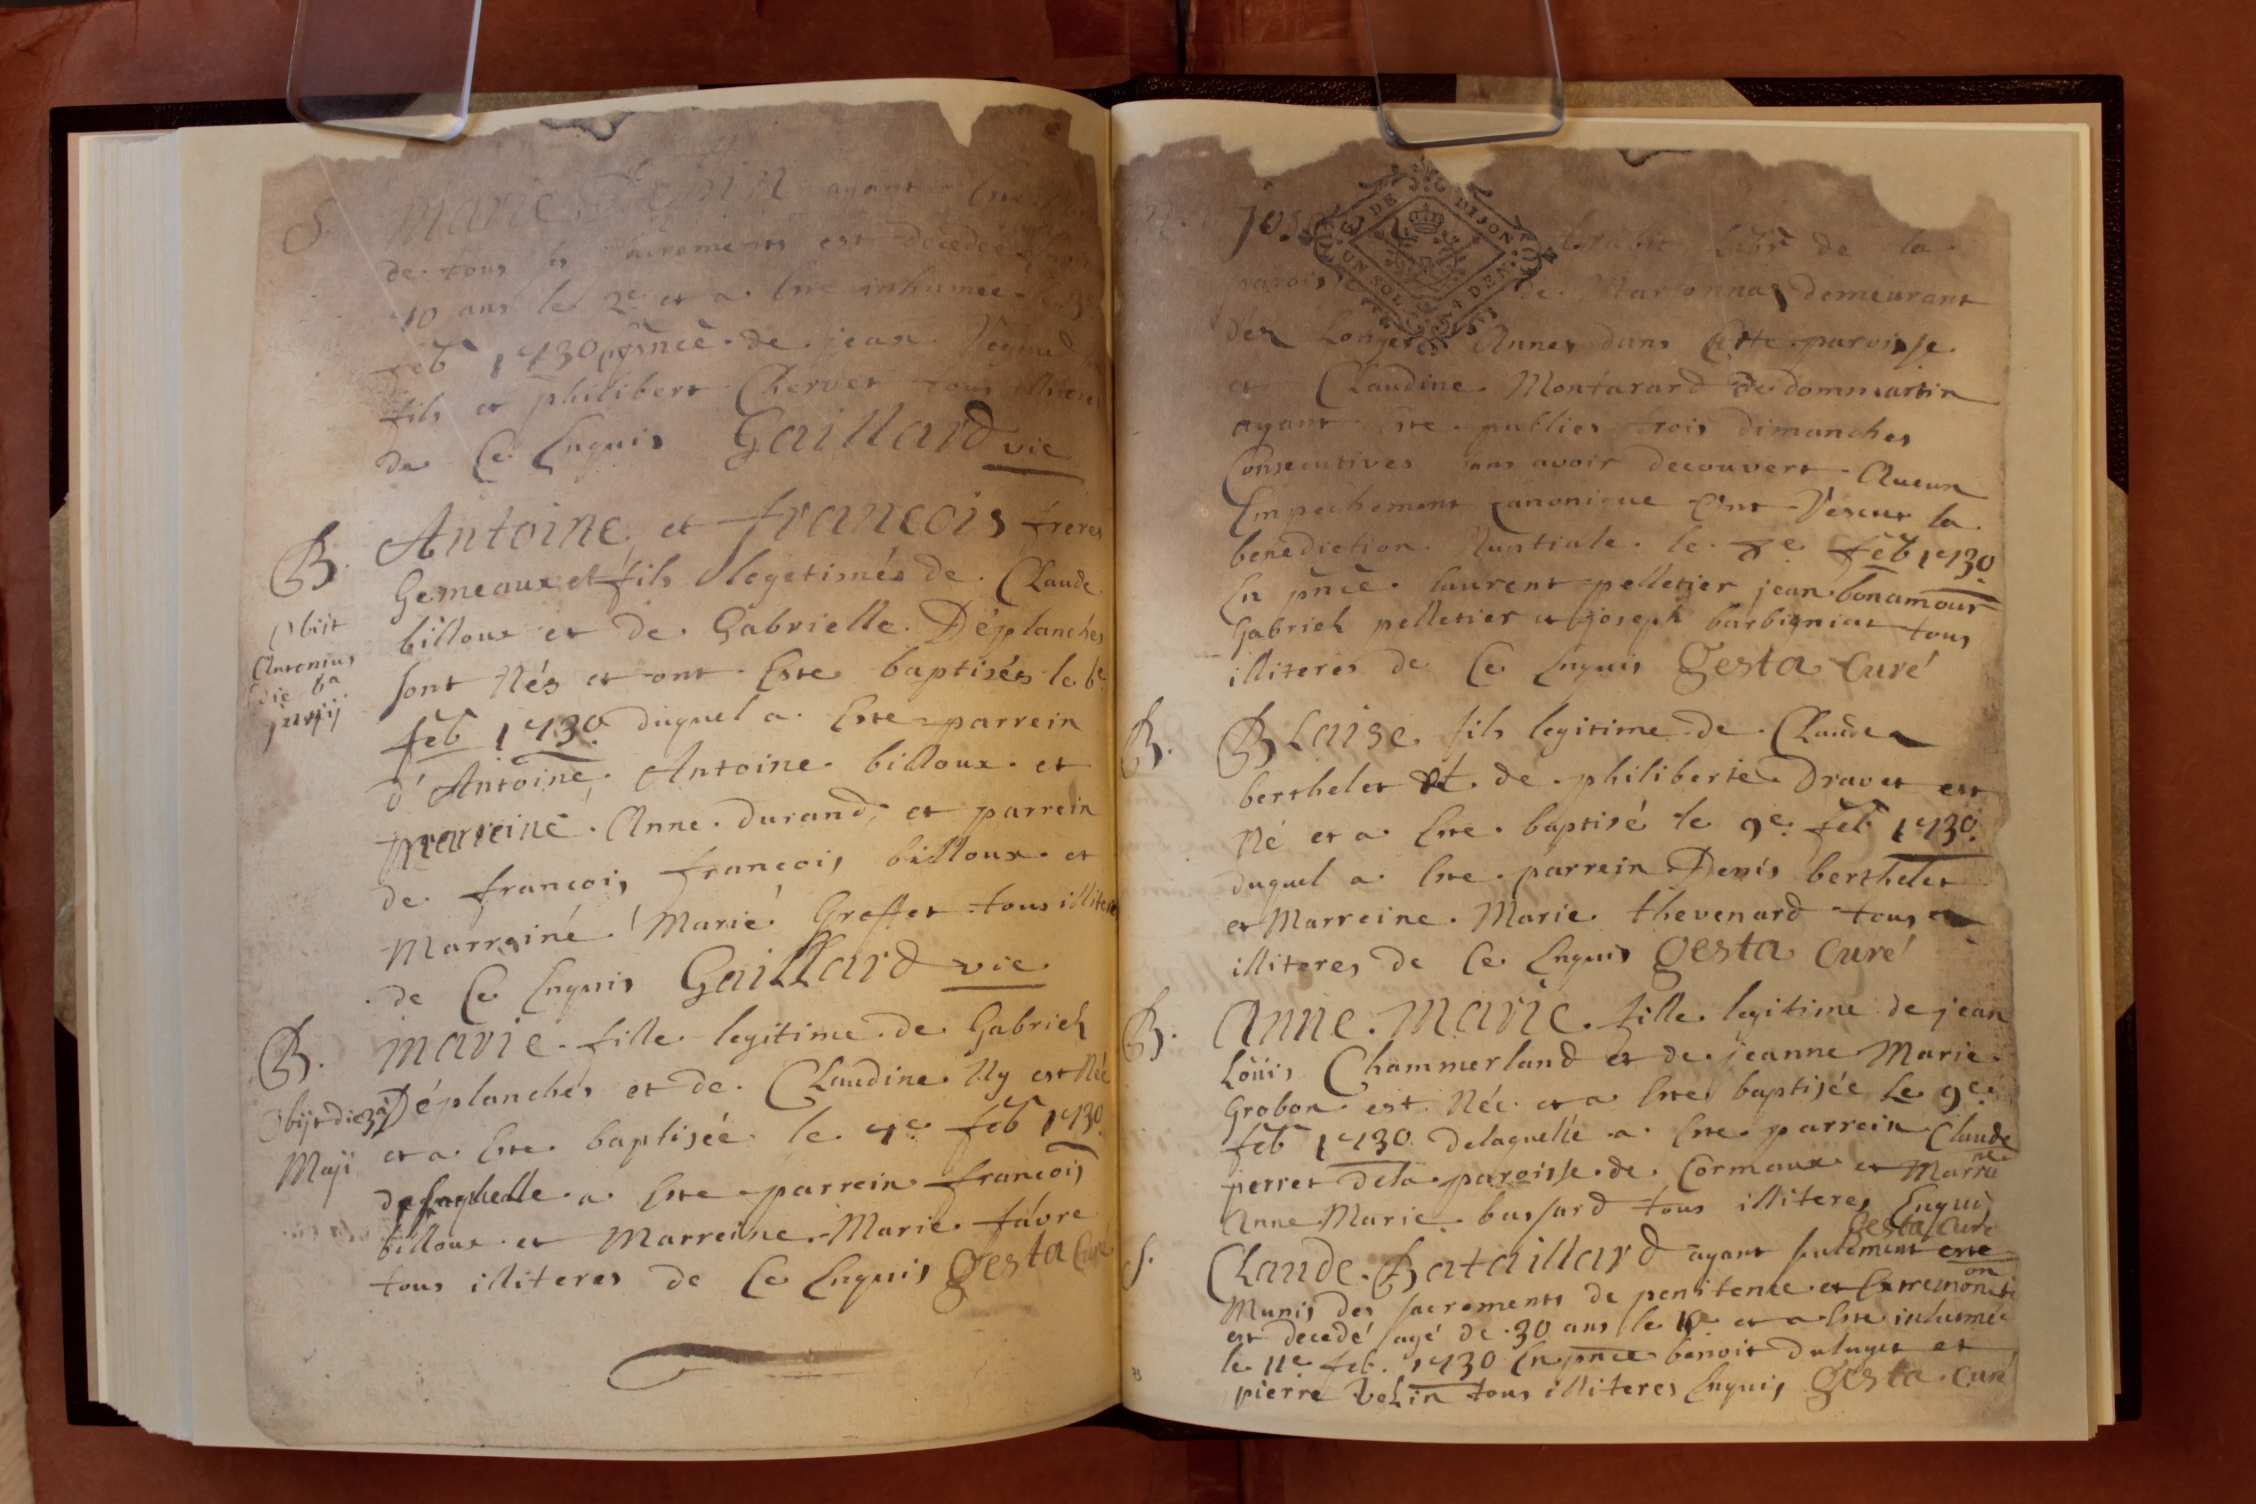 S. Marie ayant Este
de tous les sacrements est decedée
70 ans le 2e et a Este inhumée le 3e
feb 1730 pnce de jean
fils et philibert Chervet tous
de Ce Enquis Gaillard vic
B. Antoine et francois freres
Gemeaux et fils legetimés de Claude
billoux et de Gabrielle Déplanches
sont Nés et ont Este baptisés le 6e
feb 1730 duquel a Este parrein
d'Antoine Antoine billoux et
Marreine Anne durand, et parrein
de francois francois billoux et
Marreiné Marie Greffet tous illiteres
de Ce Enquis Gaillard vic
Obiit
Antonius
die 6a
junij
B. Marie fille legitime de Gabriel
Déplanches et de Claudine Ny est Née
et a Este baptisée le 7e feb 1730
de laquelle a Este parrein francois
billoux et Marreine Marie favre
tous illiteres de Ce Enquis Gesta Curé
Obijt die 3a
Maji
Jos
G DE DIJON
UN SOL 4 DEN
de la
parois de Marsonnas demeurant
dez Longes Annes dans Cette paroisse
et Claudine Montarard de dommartin
ayant Este publies trois dimanches
Consecutives sans avoir decouvert Aucun
Empechement Canonique Ont Resceut la
benediction Nuptiale le 7e feb 1730
En pnce laurent pelletier jean bonamour
Gabriel pelletier et joseph barbigniat tous
illiteres de Ce Enquis Gesta Curé
B. BLaise fils legitime de Claude
berthelet et de philiberte Dravet est
Né et a Este baptisé le 9e feb 1730
duquel a Este parrein Denis berthelet
et Marreine Marie thevenard tous
illiteres de Ce Enquis Gesta Curé
B. Anne Marie fille legitime de jean
Loüis Chammerland et de jeanne Marie
Grobon est Née et a Este baptisée Le 9e
feb 1730 delaquelle a Este parrein Claude
perret dela paroisse de Cormaux et Marrne
Anne Marie bassard tous illiteres Enquis
Gesta Curé
S. Claude Bataillard ayant seulement este
Munis des sacrements de penitence et Extremonction
est decedé agé de 30 ans le 10e et a Este inhumée
le 11e feb. 1730 En pnce benoit duluget et
pierre Velin tous illiteres Enquis Gesta Curé